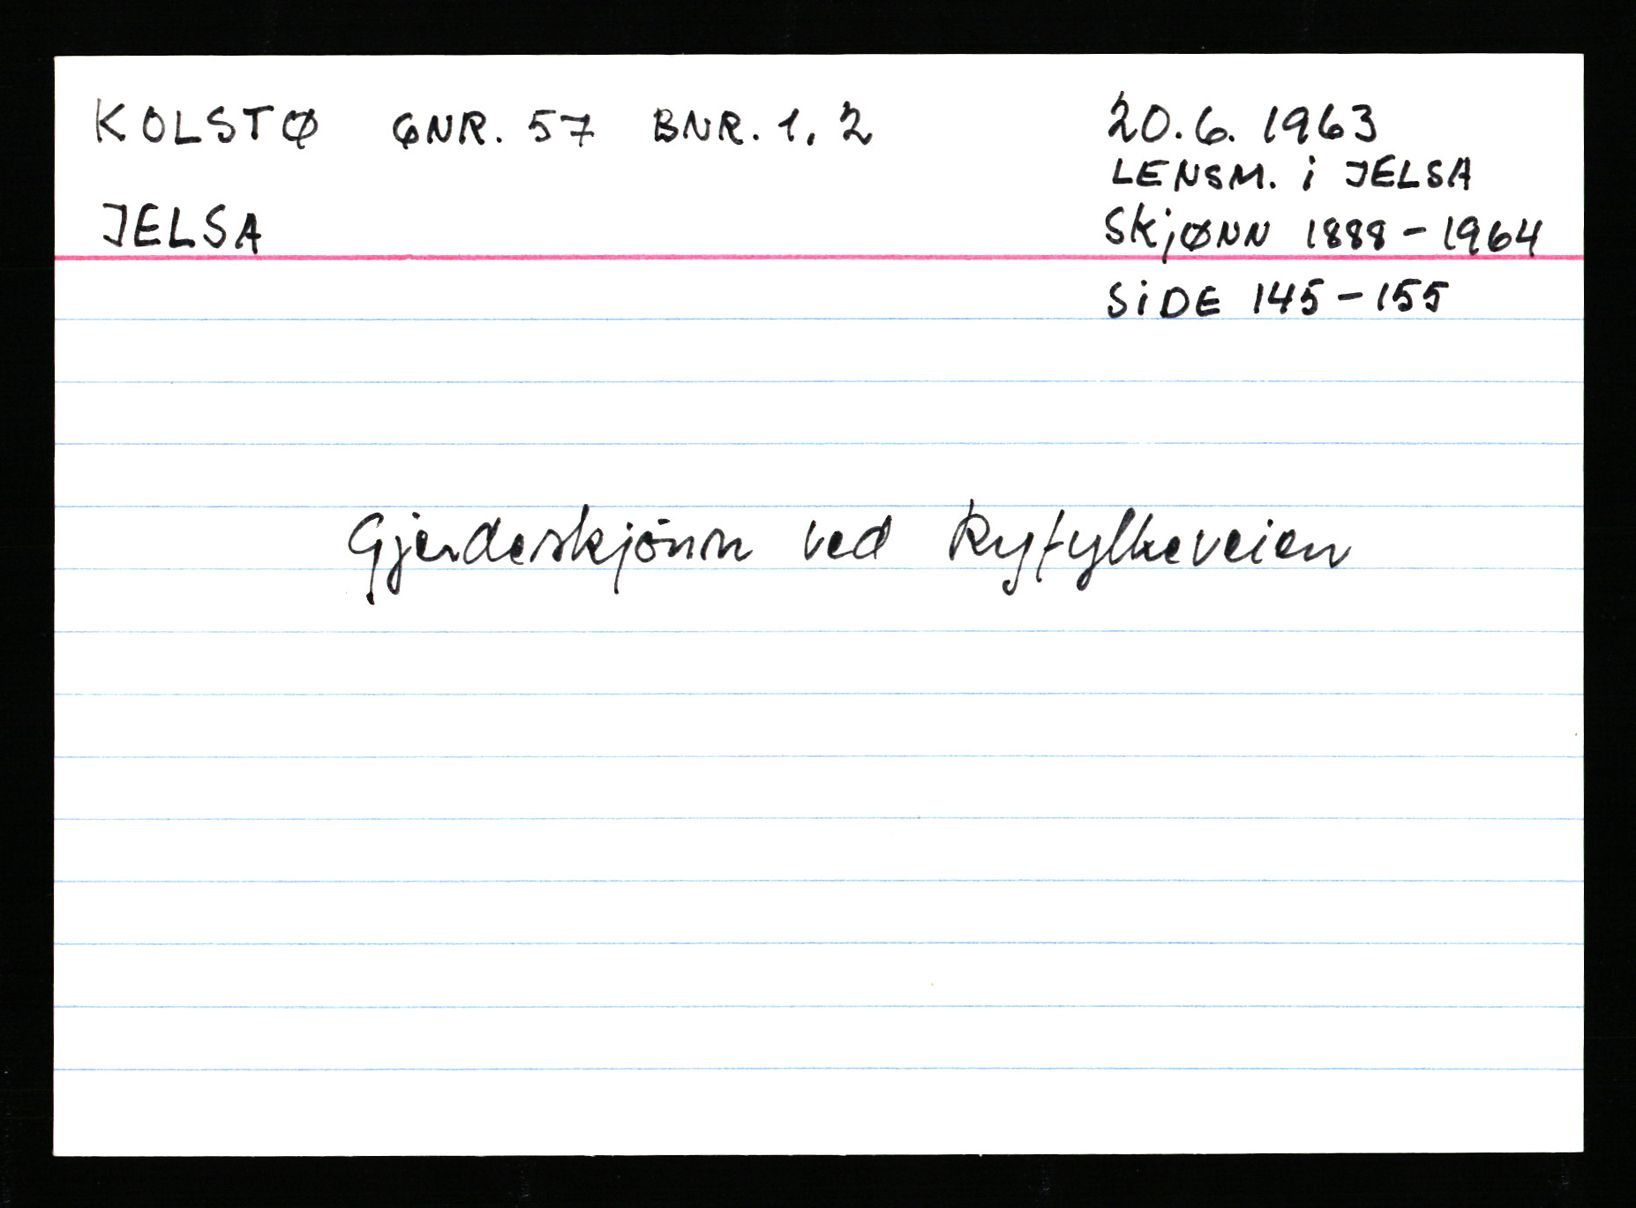 KOLSTØ GNR. 57 BNR. 1, 2
JELSA
20.6. 1963
LENSM. i JELSA
SkjØNN 1888 - 1964
SiDE 145 - 155
Gjerdeskjönn ved Ryfylkeveien